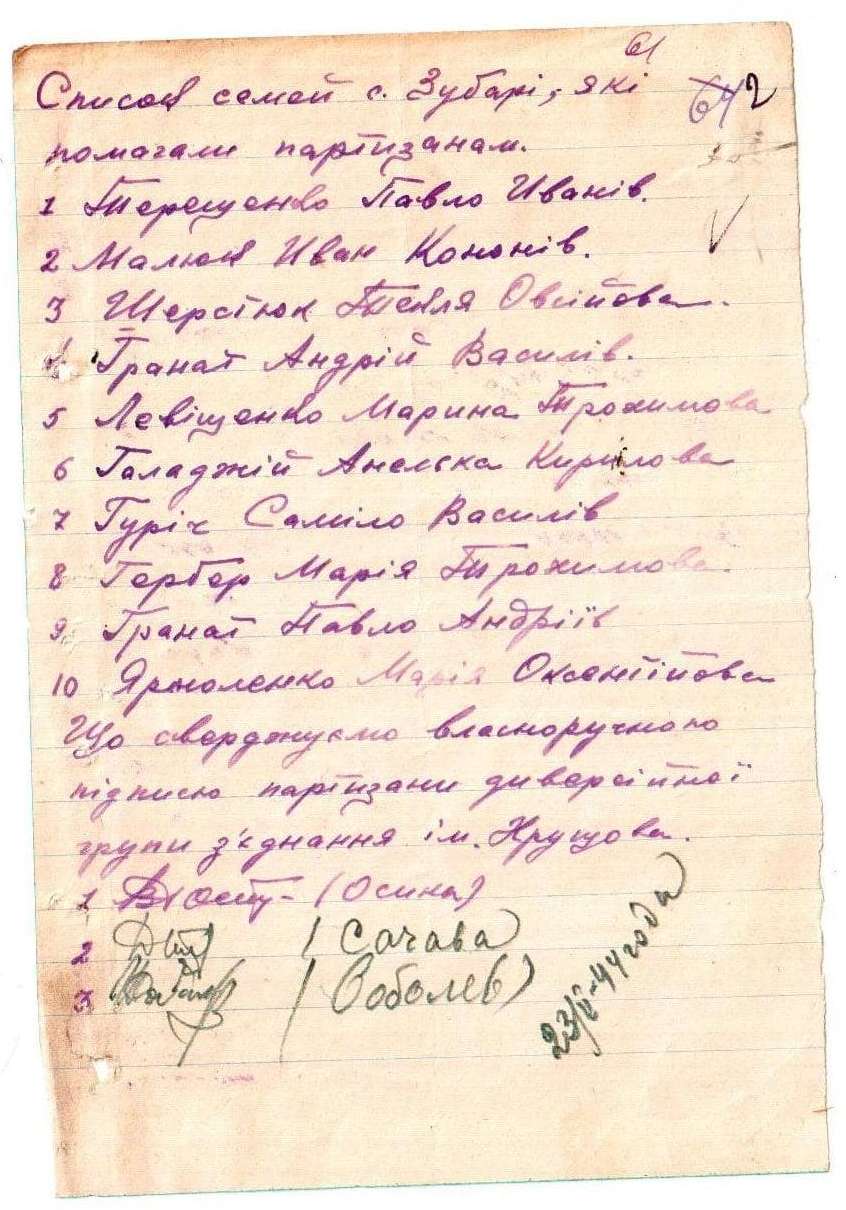 61
Список семей с. Зубарі, які
642
помагали партизанам.
1 Терещенко Павло Иванів.
2 Малюк Иван Кононів.
3 Шерстюк Текля Овсійова.
Гранат Андрій Василів.
5 Левіщенко Марина Трохимова
6 Галаджій Анелька Кирилова
7 Гуріч Саміло Василів
8 Гербер Марія Трохимова.
9 Гранат Павло Андріїв
10 Ярмоленко Марія Оксентійова
Що сверджуємо власноручною
підписю партизани диверсійної
групи з'єднання ім. Хрущова.
1 (Осина)
2 (Сачава
3 (Соболев)
23/V-44 года